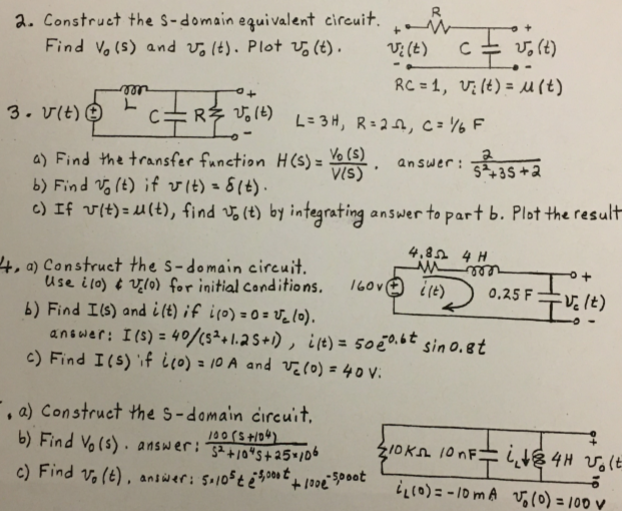 2. Construct the S-domain equivalent circuit.
Find V₀(s) and v₀(t). Plot v₀(t).
R
+ +
vᵢ(t) C v₀(t)
- -
RC = 1, vᵢ(t) = u(t)
3. v(t) L C R v₀(t) L = 3 H, R = 2 Ω, C = 1/6 F
a) Find the transfer function H(s) = V₀(s)/V(s). answer: 2/(s²+3s+2)
b) Find v₀(t) if v(t) = δ(t).
c) If v(t) = u(t), find v₀(t) by integrating answer to part b. Plot the result
4. a) Construct the S-domain circuit.
Use i(0) & v_c(0) for initial conditions.
4.8Ω 4 H
160v i(t) 0.25 F v_c(t)
b) Find I(s) and i(t) if i(0) = 0 = v_c(0).
answer: I(s) = 40/(s²+1.2s+1), i(t) = 50e^-0.6t sin 0.8t
c) Find I(s) if i(0) = 10 A and v_c(0) = 40 V.
. a) Construct the S-domain circuit.
b) Find V₀(s). answer: 100(s+10⁴)/(s²+10⁴s+25×10⁶
c) Find v₀(t), answer: 5×10⁵te^-5,000t + 100e^-5,000t
10KΩ 10nF i_L 4H v₀(t
i_L(0) = -10 mA v₀(0) = 100 V